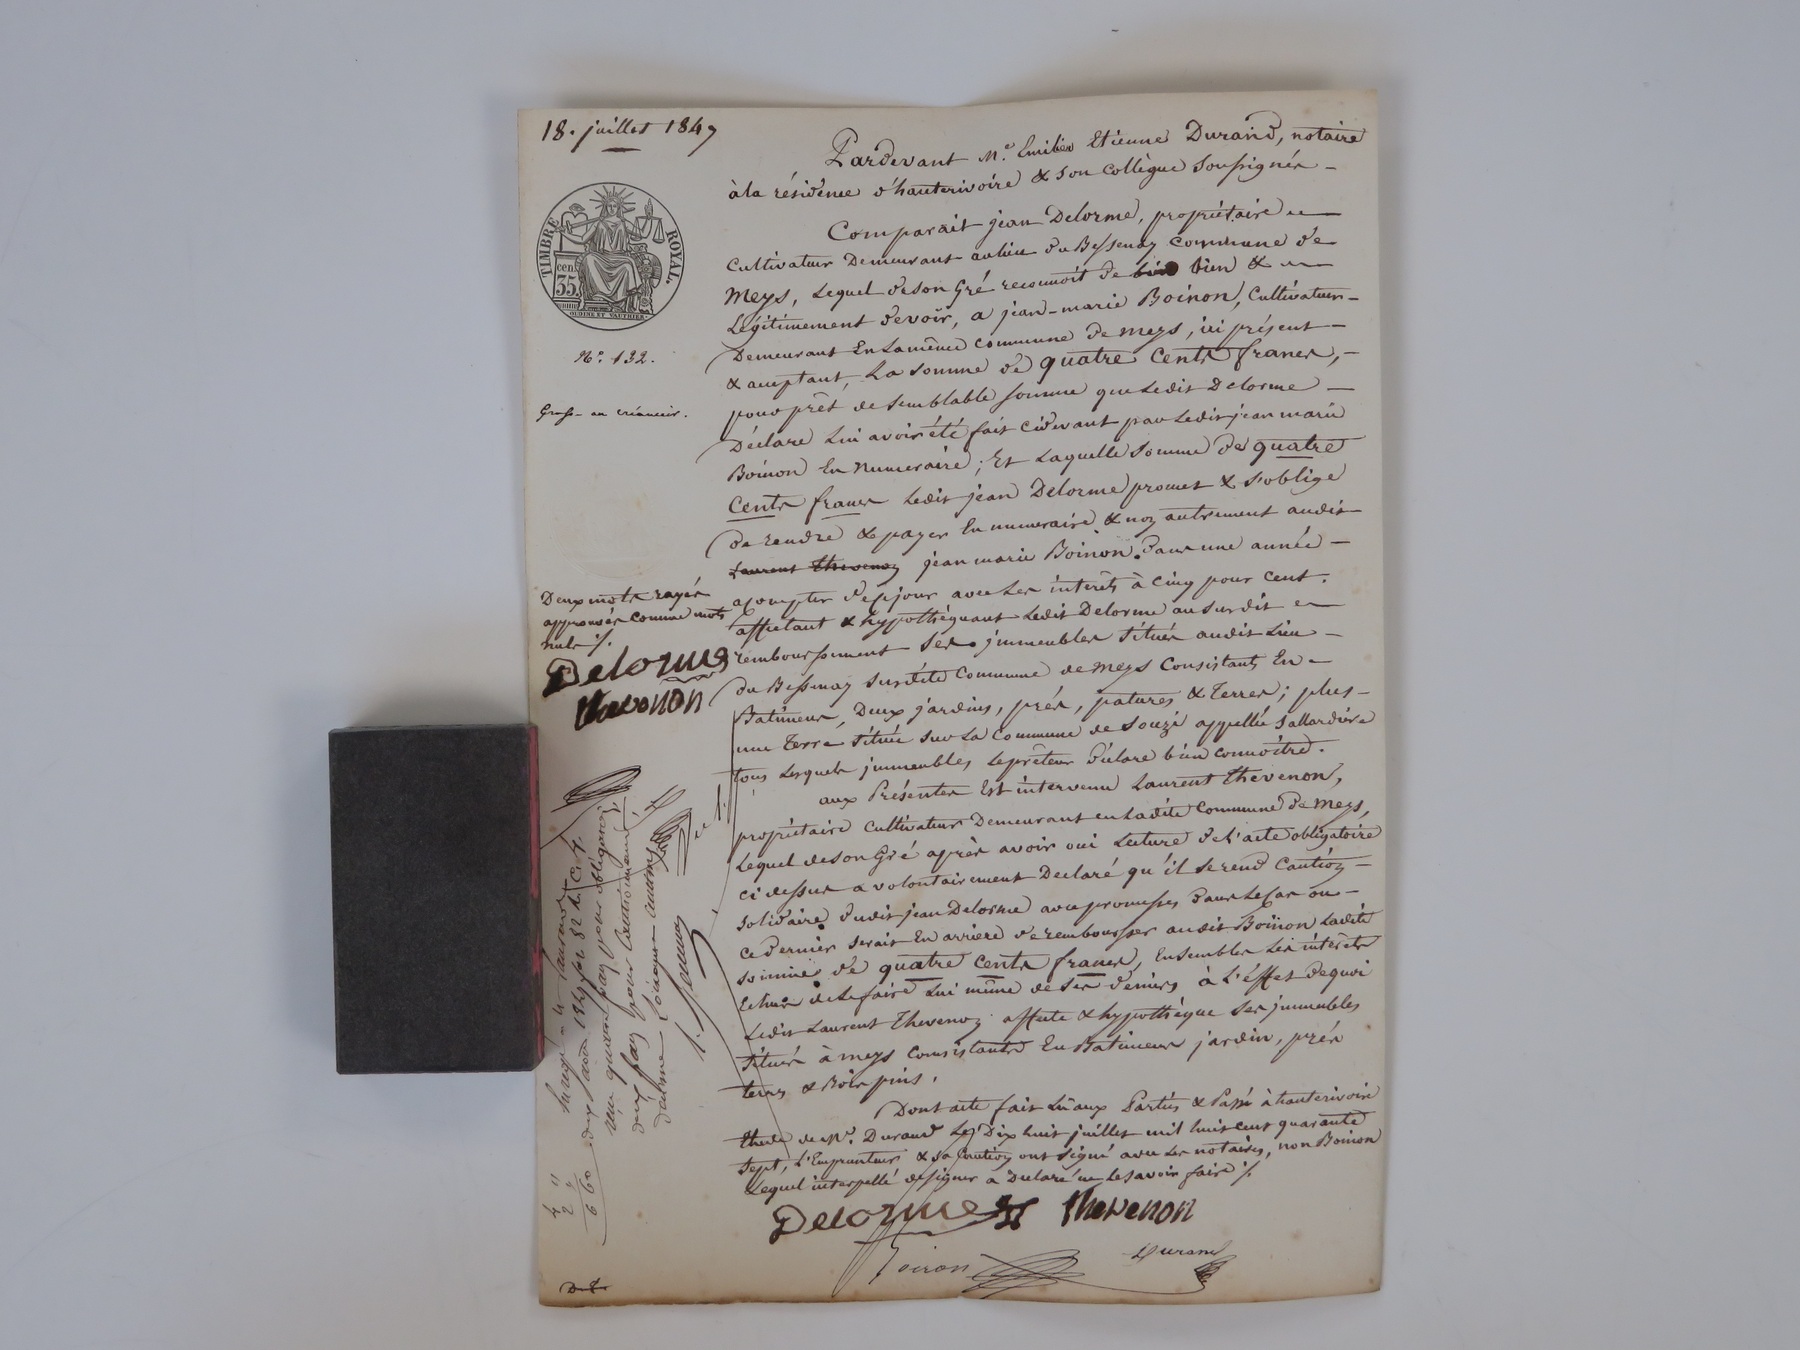 18. juillet 1847
TIMBRE ROYAL.
cen.
35.
OUDINE ET VAUTHIER.
N.º 132.
Grosse au créancier.
Pardevant M.e Emilien Etienne Durand, notaire
à la résidence d'hauterivoire & son collègue soussignés –
Comparait jean Delorme, propriétaire
Cultivateur Demeurant au lieu du Bessenay Commune de
Meys, Lequel de son Gré reconnoit de bien &
Légitimement devoir, a jean-marie Boinon, Cultivateur –
Demeurant En la même commune de meys, ici présent –
& acceptant, La somme de quatre Cents francs, –
pour prêt de semblable somme que Ledit Delorme –
Déclare Lui avoir été fait cidevant par Ledit jean marie
Boinon En numeraire; Et Laquelle somme de quatre
Cents francs Ledit jean Delorme promet & s'oblige
de rendre & payer En numeraire & non autrement audit
Laurent Thevenon jean marie Boinon. Dans une année –
a compter de ce jour avec Les interêts à Cinq pour Cent.
affectant & hypothéquant Ledit Delorme au susdit
remboursement Ses jmmeubles situés audit Lieu –
du Bessenay susdite Commune de Meys Consistants En
Batimens, Deux jardins, prés, patures & Terres; plus –
une Terre située sur La Commune de Souzi appellée
tous Lesquels jmmeubles Le prêteur Déclare bien connoître.
aux Présentes Est intervenu Laurent Thevenon,
propriétaire Cultivateur Demeurant en Ladite Commune de Meys,
Lequel de son Gré après avoir oui Lecture de l'acte obligatoire
ci dessus a volontairement Déclaré qu'il se rend Caution –
solidaire dudit jean Delorme avec promesses Dans Le cas ou –
ce Dernier serait En arriere de rembourser audit Boinon Ladite
somme de quatre Cents francs, Ensembles Les interêts
Echus de Le faire Lui même de ses Deniers à L'effet de quoi
Ledit Laurent Thevenon affecte & hypothéque Ses jmmeubles
situés à meys Consistants En Batimens jardin, prés
terres & Bois pins.
Dont acte fait Lu aux Parties & Passé à hauterivoire
Etude de Me. Durand Le Dix huit juillet mil huit cent quarante
sept, L'Emprunteur & sa Caution ont signé avec Les notaires, non Boinon
Lequel interpellé de signer a Declaré ne Le savoir faire /.
Deux mots rayés
approuvés comme mots
nuls /.
Delorme
Thevenon
Delorme
Thevenon
Durand